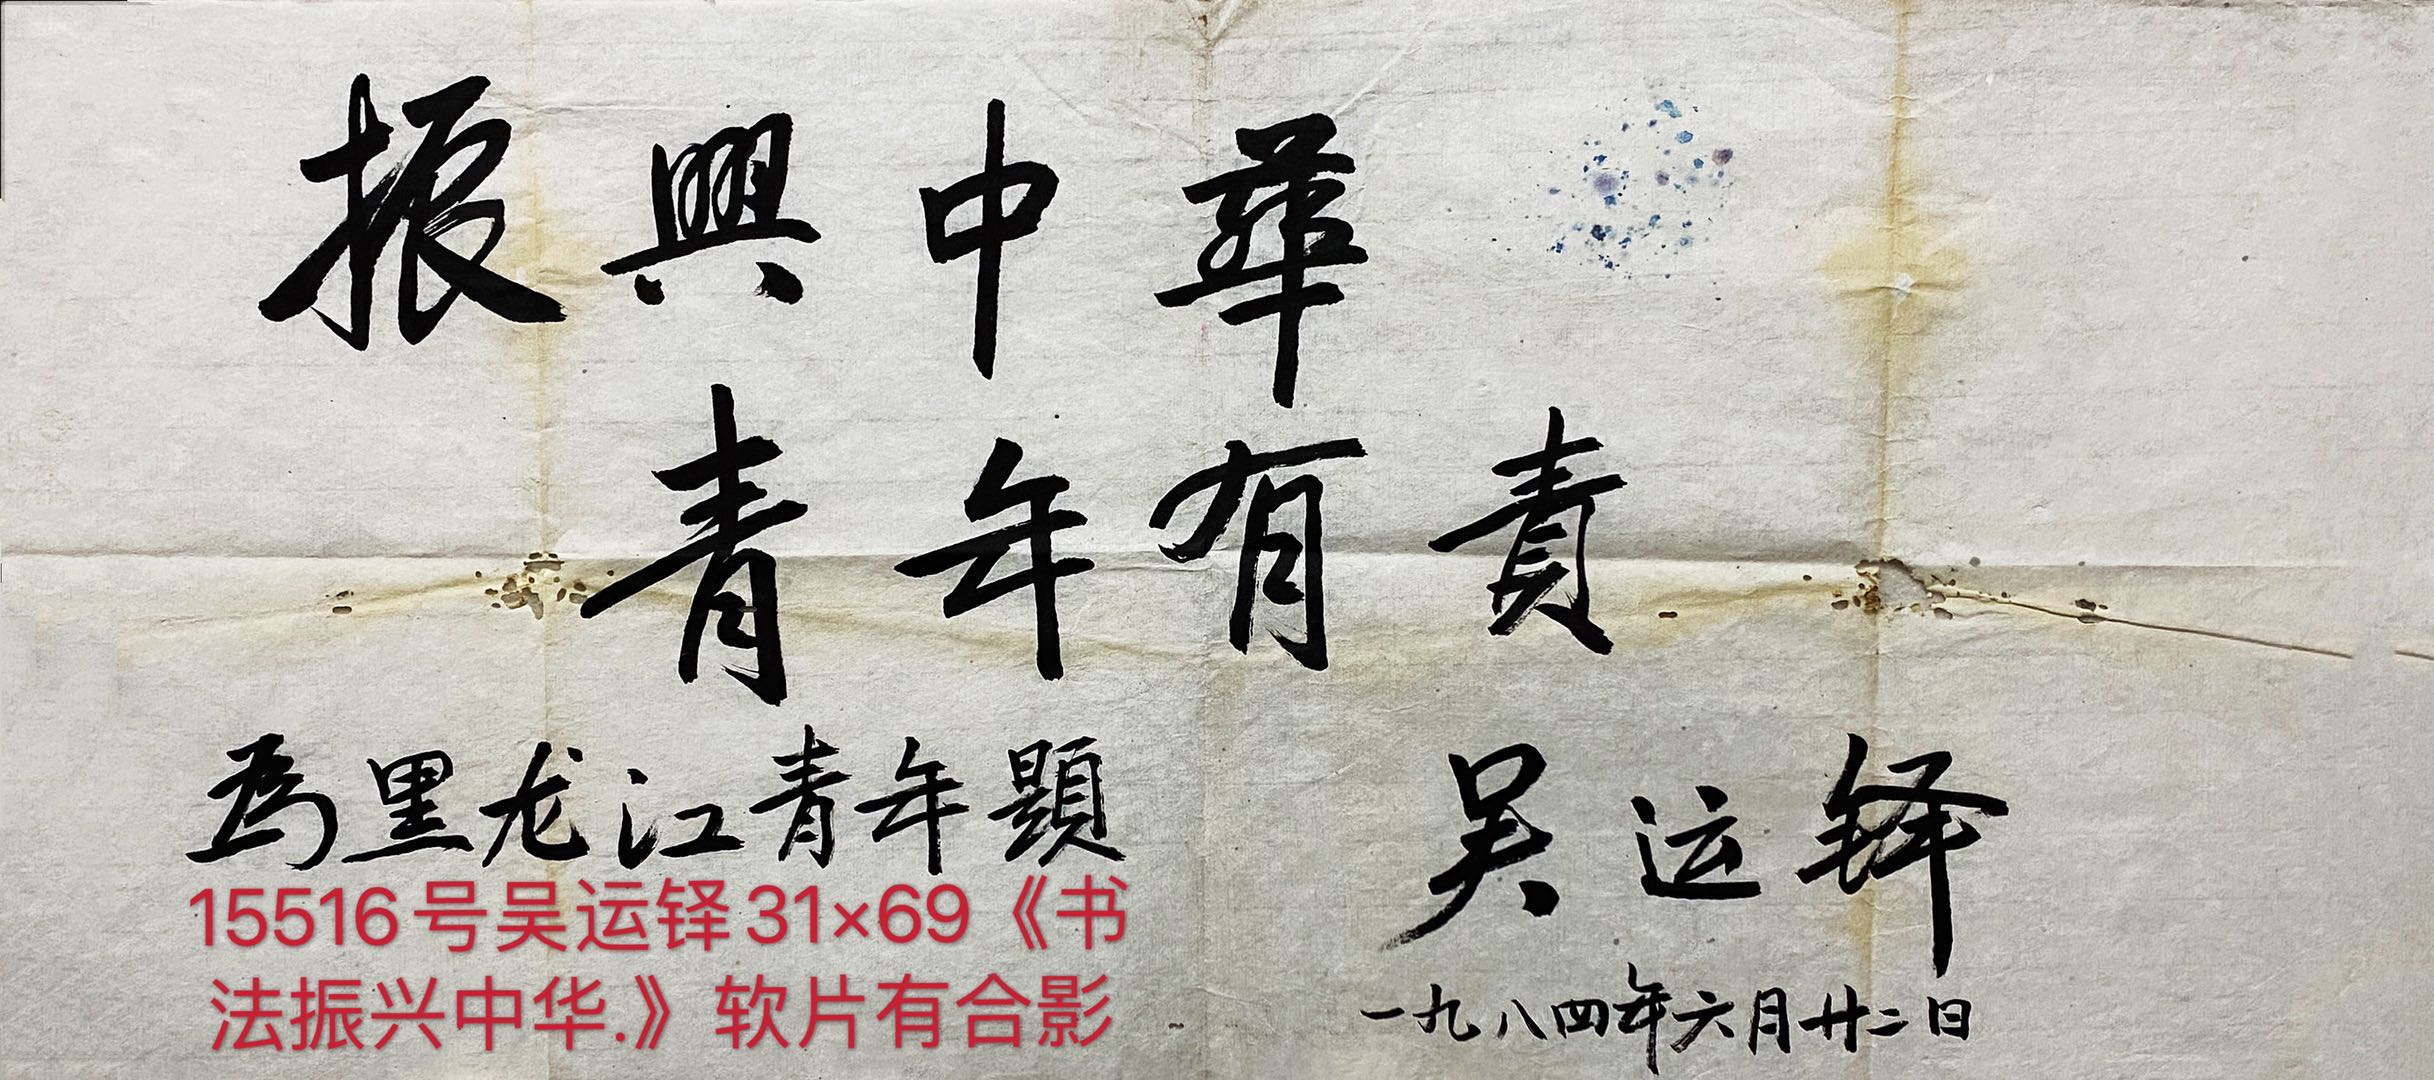 振興中華
青年有責
為黑龙江青年题
吴运铎
一九八四年六月廿二日
15516号吴运铎31×69《书
法振兴中华.》软片有合影